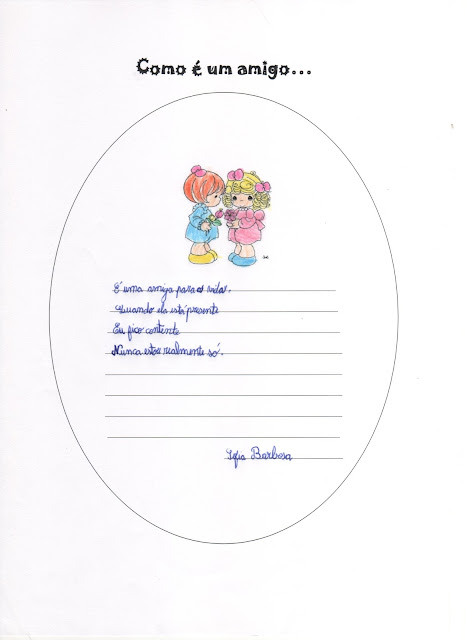 Como é um amigo...
É uma amiga para a vida.
Quando ela está presente
Eu fico contente
Nunca estou realmente só.
Sofia Barbosa